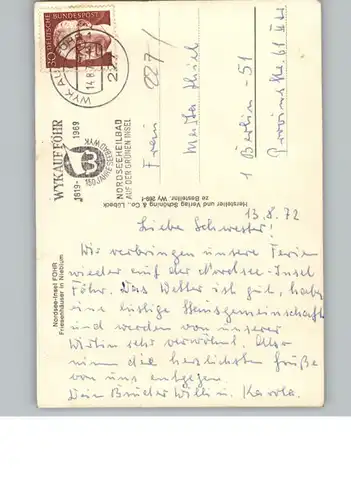 13.8.72
Liebe Schwester!
Wir verbringen unsere Ferien
wieder auf der Nordsee-Insel
Föhr. Das Wetter ist gut, haben
eine lustige Hausgemeinschaft
und werden von unserer
Wirtin sehr verwöhnt. Also
nimm die herzlichsten Grüße
von uns entgegen.
Dein Bruder Willi u. Karola.
Nordsee-Insel FÖHR
Friesenhäuser in Nieblum
Hersteller und Verlag Schöning & Co., Lübeck
zu Bestellnr. Wy
Frau
1 Berlin - 51
30 DEUTSCHE BUNDESPOST
WYK AUF FÖHR
1819-1969
150 JAHRE SEEBAD WYK
NORDSEEHEILBAD
AUF DER GRÜNEN INSEL